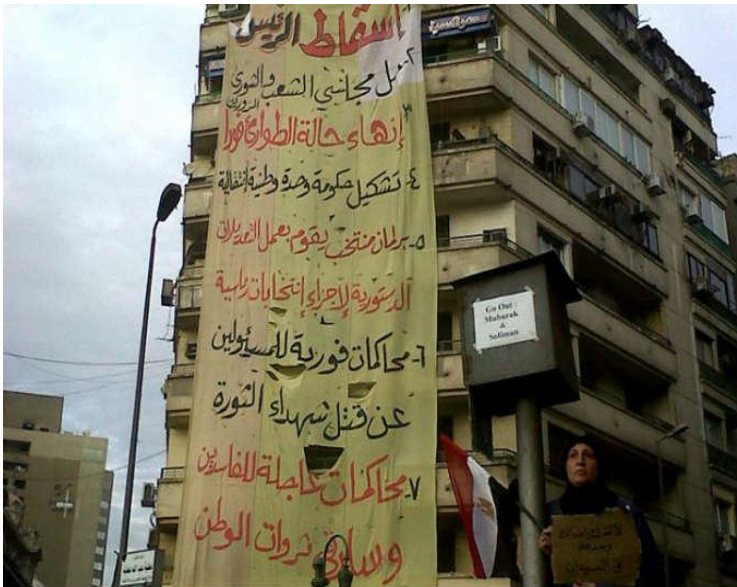 إسقاط الرئيس
٢- حل مجلسي الشعب والشورى
المزورين
٣- إنهاء حالة الطوارئ فورا
٤- تشكيل حكومة وحدة وطنية انتقالية
٥- برلمان منتخب يقوم بعمل التعديلات
الدستورية لإجراء إنتخابات رئاسية
٦- محاكمات فورية للمسئولين
عن قتل شهداء الثورة
٧- محاكمات عاجلة للفاسدين
وسارقي ثروات الوطن
Go Out :
Mubarak
&
Soliman
في الميدان